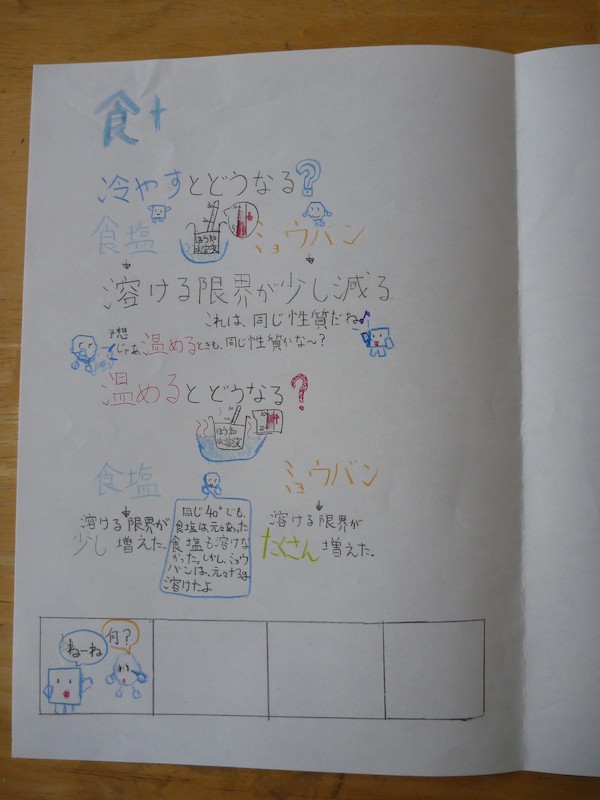 食+
冷やすとどうなる?
食塩
ミョウバン
溶ける限界が少し減る
これは、同じ性質だね♪
予想
じゃあ温めるときも、同じ性質かな〜?
温めるとどうなる?
食塩
ミョウバン
溶ける限界が
少し増えた。
同じ40°でも、
食塩は元々あった
食塩も溶けな
かった。しかし、ミョウ
バンは、元々ある
溶けたよ
溶ける限界が
たくさん増えた。
ねーね
何?